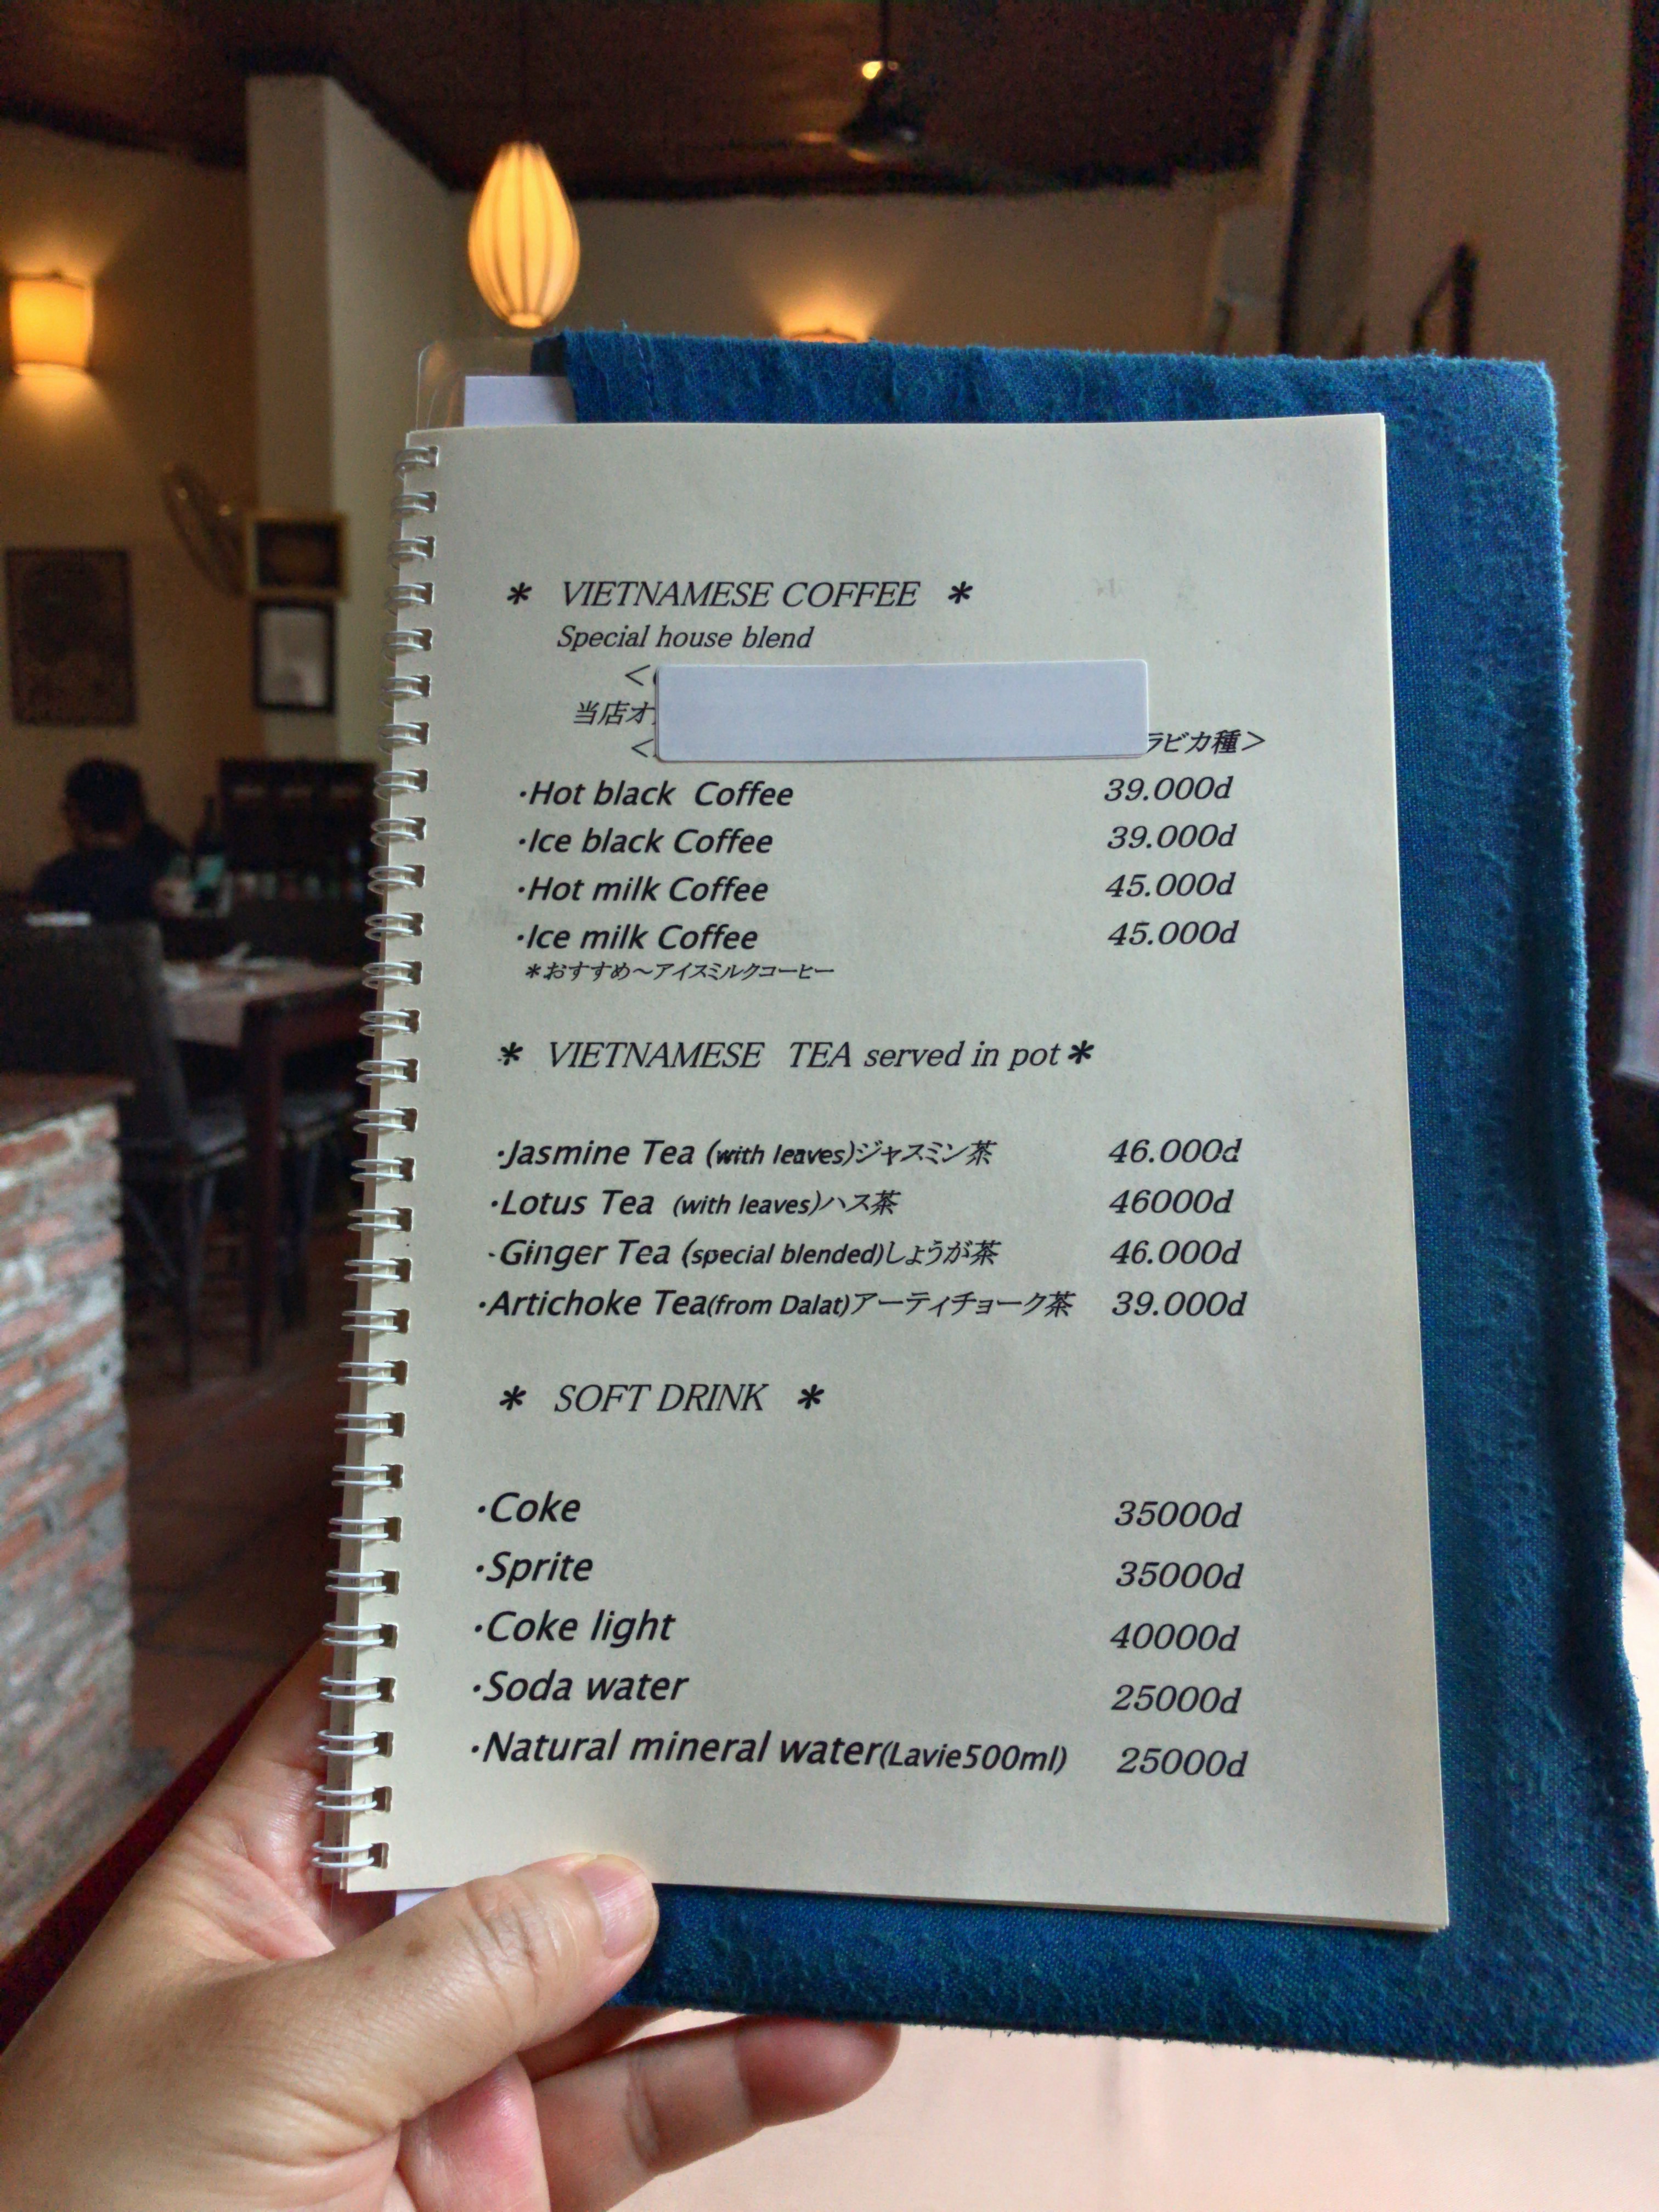 * VIETNAMESE COFFEE *
Special house blend
<
当店オ
< ラビカ種>
・Hot black Coffee 39.000d
・Ice black Coffee 39.000d
・Hot milk Coffee 45.000d
・Ice milk Coffee 45.000d
*おすすめ~アイスミルクコーヒー
* VIETNAMESE TEA served in pot *
・Jasmine Tea (with leaves)ジャスミン茶 46.000d
・Lotus Tea (with leaves)ハス茶 46000d
・Ginger Tea (special blended)しょうが茶 46.000d
・Artichoke Tea(from Dalat)アーティチョーク茶 39.000d
* SOFT DRINK *
・Coke 35000d
・Sprite 35000d
・Coke light 40000d
・Soda water 25000d
・Natural mineral water(Lavie500ml) 25000d